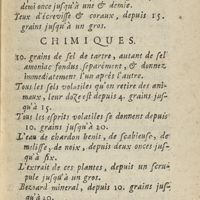 demi once jusqu'à une & demie.
Yeux d'écrevisse & coraux, depuis 15.
grains jusqu'à un gros.
CHIMIQUES.
10. grains de sel de tartre, autant de sel
amoniac fondus separément, & donnez
immediatement l'un aprés l'autre.
Tous les sels volatiles qu'on retire des ani-
maux, leur doze est depuis 4. grains jus-
qu'à 15.
Tous les esprits volatiles se donnent depuis
10. grains jusqu'à 20.
L'eau de chardon benit, de scabieuse, de
melisse, de noix, depuis deux onces jus-
qu'à six.
L'extrait de ces plantes, depuis un scru-
pule jusqu'à un gros.
Bezoard mineral, depuis 10. grains jus-
qu'à 20.